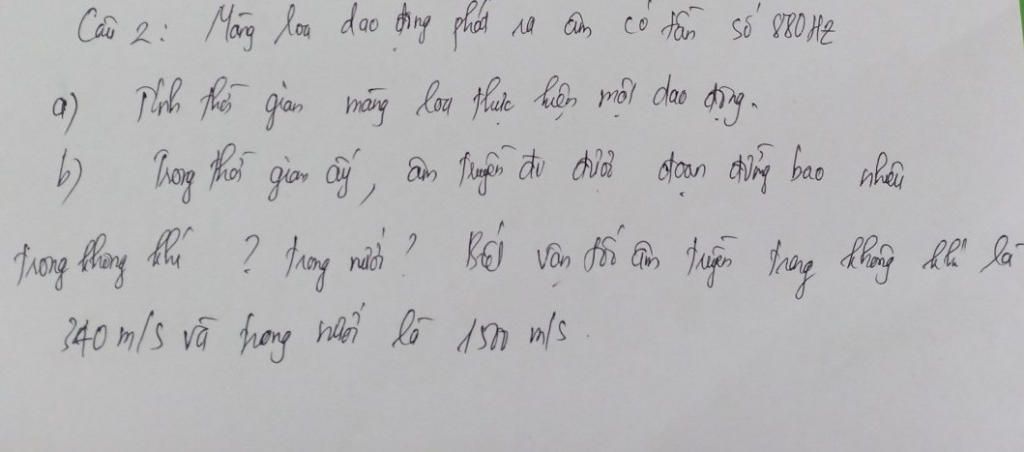 Câu 2: Màng loa dao động phát ra âm có tần số 880Hz
a) Tính thời gian màng loa thực hiện một dao động.
b) Trong thời gian ấy, âm truyền đi được đoạn đường bao nhiêu
trong không khí ? trong nước ? Biết vận tốc âm truyền trong không khí là
340 m/s và trong nước là 1500 m/s.